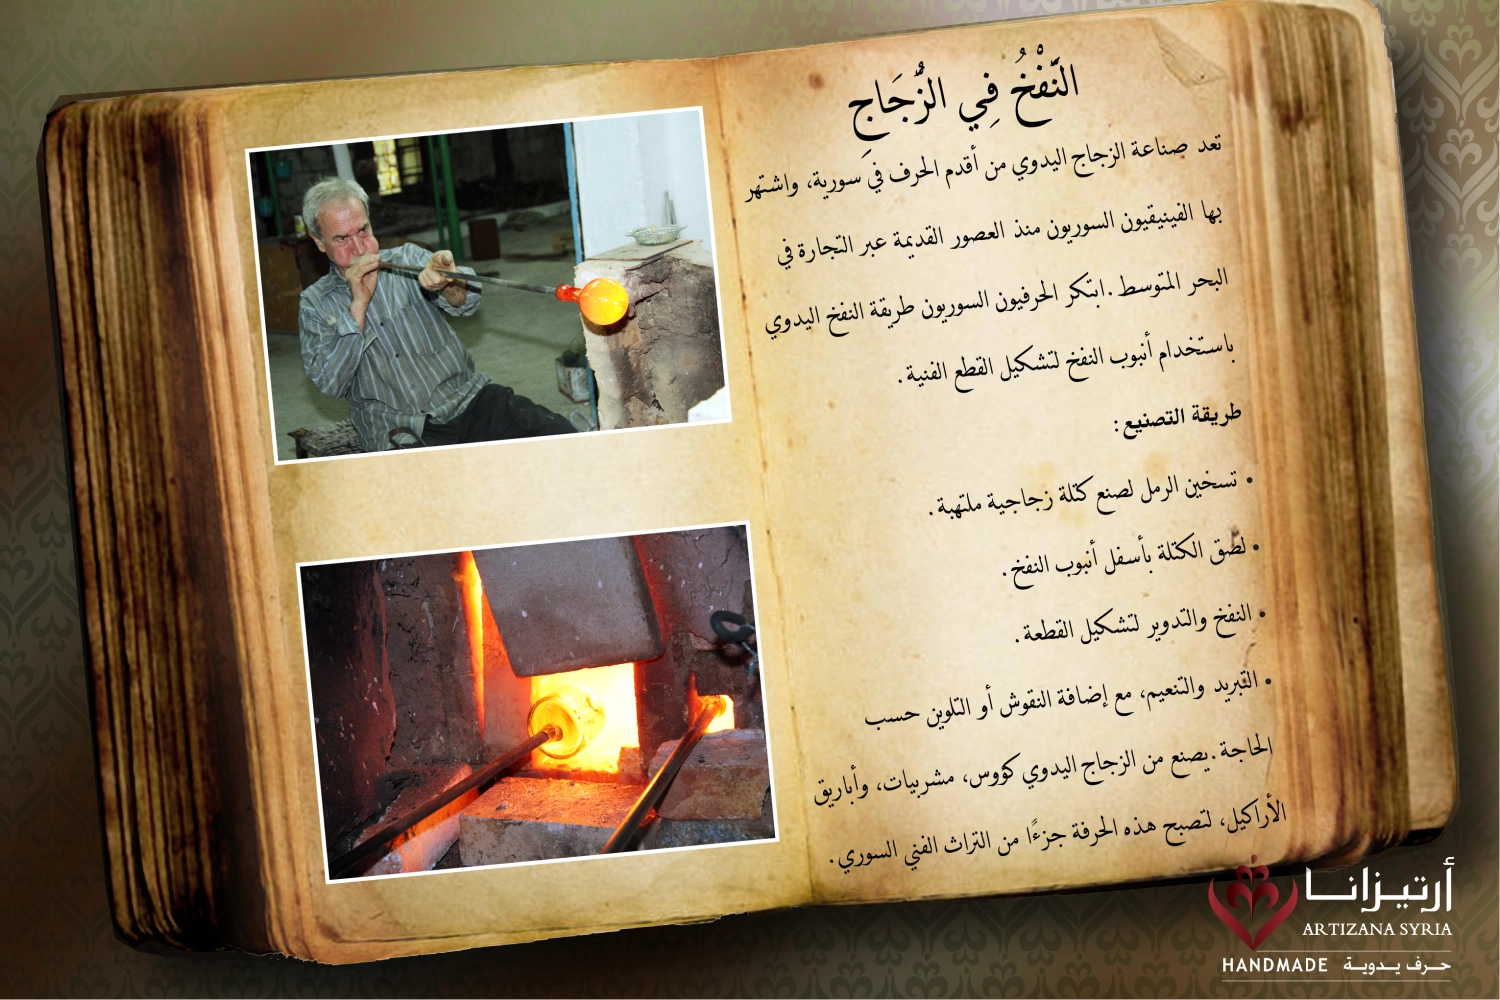 النَّفْخُ فِي الزُّجَاجِ
تعد صناعة الزجاج اليدوي من أقدم الحرف في سورية، واشتهر
بها الفينيقيون السوريون منذ العصور القديمة عبر التجارة في
البحر المتوسط. ابتكر الحرفيون السوريون طريقة النفخ اليدوي
باستخدام أنبوب النفخ لتشكيل القطع الفنية.
طريقة التصنيع:
• تسخين الرمل لصنع كتلة زجاجية ملتهبة.
• لصق الكتلة بأسفل أنبوب النفخ.
• النفخ والتدوير لتشكيل القطعة.
• التبريد والتنعيم، مع إضافة النقوش أو التلوين حسب
الحاجة. يصنع من الزجاج اليدوي كؤوس، مشربيات، وأباريق
الأراكيل، لتصبح هذه الحرفة جزءًا من التراث الفني السوري.
أرتيزانا
ARTIZANA SYRIA
HANDMADE حرف يدوية